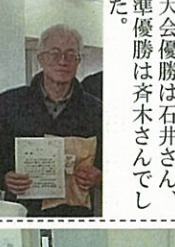 大会優勝は石井さん、
準優勝は斉木さんでし
た。